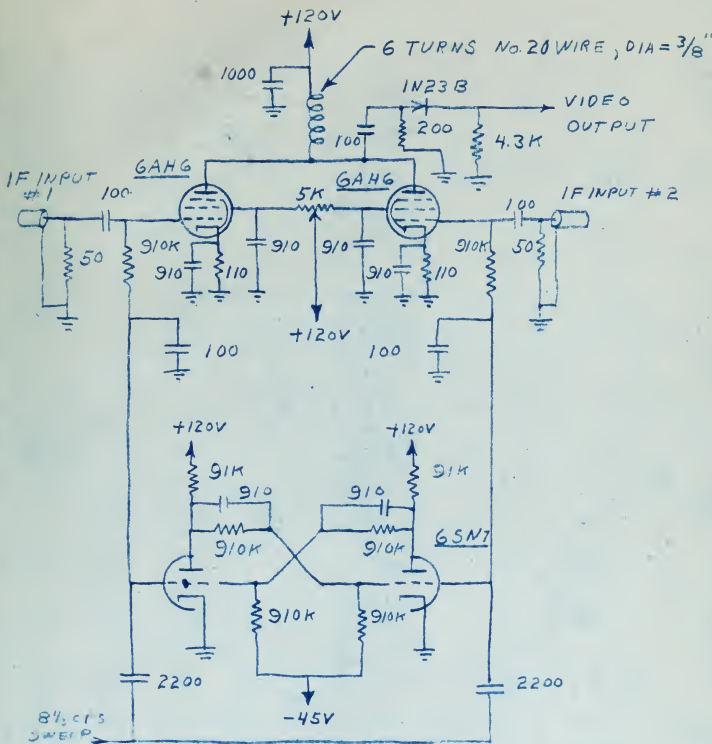 +120V
6 TURNS No. 20 WIRE, DIA = 3/8"
1000
1N23B
VIDEO
OUTPUT
100
200
4.3K
6AH6
6AH6
IF INPUT
#1
100
5K
100
IF INPUT #2
50
910K
910
110
910
910
910
110
910K
50
+120V
100
100
+120V
+120V
91K
91K
910
910
910K
910K
6SN7
910K
910K
2200
2200
-45V
8½ CPS
SWEEP